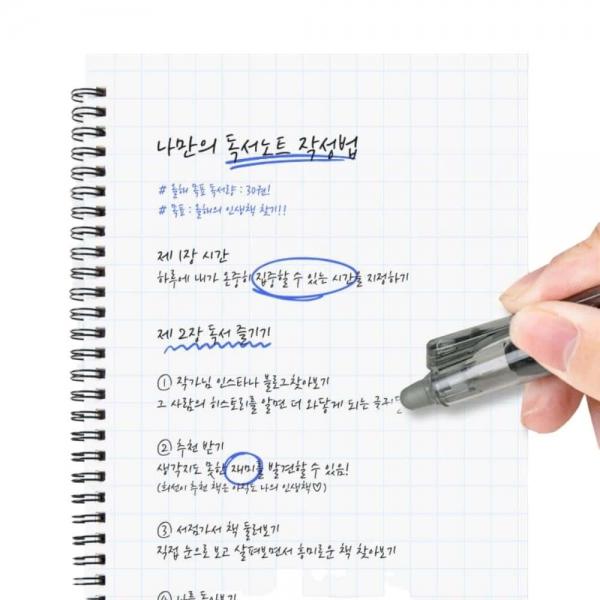 나만의 독서노트 작성법
# 올해 목표 독서량 : 30권!
# 목표 : 올해의 인생책 찾기!!
제 1장 시간
하루에 내가 온종히 집중할 수 있는 시간를 지정하기
제 2장 독서 즐기기
① 작가님 인스타나 블로그찾아보기
그 사람의 히스토리를 알면 더 와닿게 되는
② 추천 받기
생각지도 못한 재미를 발견할 수 있음!
(희선이 추천 책은 아직도 나의 인생책♡)
③ 서점가서 책 둘러보기
직접 눈으로 보고 살펴보면서 흥미로운 책 찾아보기